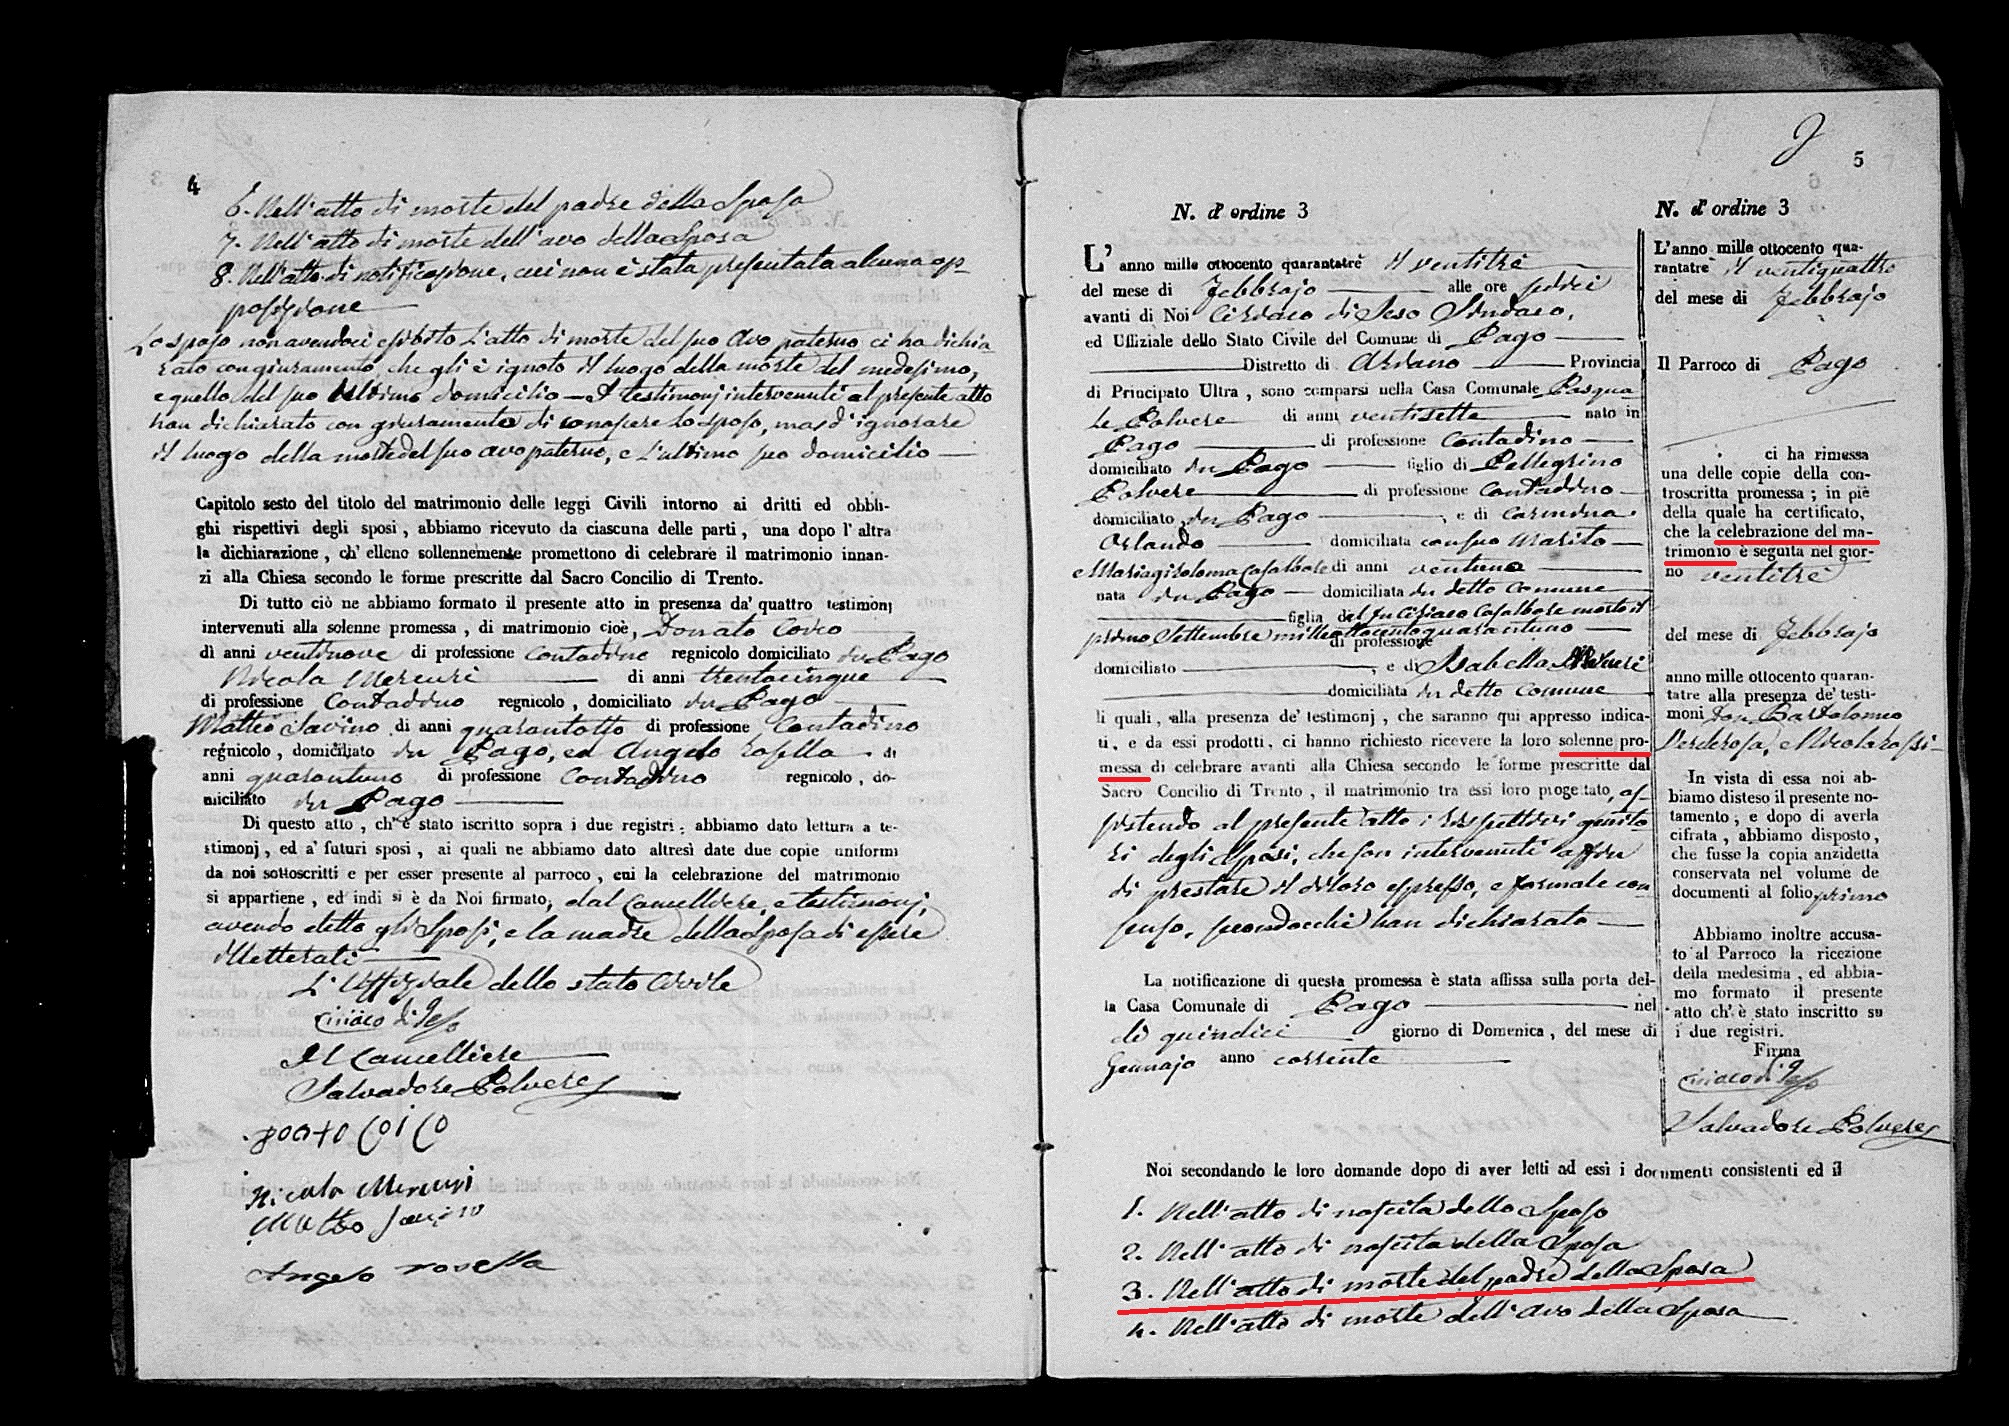 4
6. Nell'atto di morte del padre della Sposa
7. Nell'atto di morte dell'avo della Sposa
8. Nell'atto di notificazione, cui non è stata presentata alcuna op-
posizione
Lo sposo non avendoci esibito l'atto di morte del suo Avo paterno ci ha dichia-
rato con giuramento, che gli è ignoto il luogo della morte del medesimo,
e quello del suo ultimo domicilio — I testimonj intervenuti al presente atto
han dichiarato con giuramento di conoscere lo sposo, ma d'ignorare
il luogo della morte del suo avo paterno, e l'ultimo suo domicilio —
Capitolo sesto del titolo del matrimonio delle leggi Civili intorno ai dritti ed obbli-
ghi rispettivi degli sposi, abbiamo ricevuto da ciascuna delle parti, una dopo l'altra
la dichiarazione, ch'elleno sollennemente promettono di celebrare il matrimonio innan-
zi alla Chiesa secondo le forme prescritte dal Sacro Concilio di Trento.
Di tutto ciò ne abbiamo formato il presente atto in presenza da' quattro testimonj
intervenuti alla solenne promessa, di matrimonio cioè, Donato Coico
di anni ventinove di professione Contadino regnicolo domiciliato in Pago
Nicola Mercuri di anni trentacinque
di professione Contadino regnicolo, domiciliato in Pago
Matteo Savino di anni quarantotto di professione Contadino
regnicolo, domiciliato in Pago, ed Angelo Rosella di
anni quarantuno di professione Contadino regnicolo, do-
miciliato in Pago
Di questo atto, ch'è stato iscritto sopra i due registri; abbiamo dato lettura a te-
stimonj, ed a' futuri sposi, ai quali ne abbiamo dato altresì date due copie uniformi
da noi sottoscritti e per esser presente al parroco, cui la celebrazione del matrimonio
si appartiene, ed indi si è da Noi firmato, dal Cancelliere, e testimonj,
avendo detto gli Sposi, e la madre della Sposa di essere
illetterati
L'Uffiziale dello stato Civile
Ciriaco di Jeso
Il Cancelliere
Salvadore Polvere
Donato Coico
Nicola Mercuri
Matteo Savino
Angelo rosella
5
N. d'ordine 3
L'anno mille ottocento quarantatrè il ventitrè
del mese di Febbrajo alle ore sedici
avanti di Noi Ciriaco di Jeso Sindaco,
ed Uffiziale dello Stato Civile del Comune di Pago
Distretto di Ariano Provincia
di Principato Ultra, sono comparsi nella Casa Comunale Pasqua
le Polvere di anni ventisette nato in
Pago di professione Contadino
domiciliato in Pago figlio di Pellegrino
Polvere di professione Contadino
domiciliato in Pago, e di Carmina
Orlando domiciliata con suo Marito
e Mariagirolama Casalbore di anni ventuno
nata in Pago domiciliata in detto Comune
figlia del fu Ciriaco Casalbore morto il
primo Settembre milleottocentoquarantuno
di professione
domiciliato, e di Isabella
domiciliata in detto Comune
li quali, alla presenza de' testimonj, che saranno qui appresso indica-
ti, e da essi prodotti, ci hanno richiesto ricevere la loro solenne pro-
messa di celebrare avanti alla Chiesa secondo le forme prescritte dal
Sacro Concilio di Trento, il matrimonio tra essi loro progettato, as-
sistendo al presente atto i rispettivi genito-
ri degli Sposi, che son intervenuti affin
di prestare il di loro espresso, e formale con-
senso, secondocchè han dichiarato
La notificazione di questa promessa è stata affissa sulla porta del-
la Casa Comunale di Pago nel
dì quindici giorno di Domenica, del mese di
Gennajo anno corrente
N. d'ordine 3
L'anno mille ottocento qua-
rantatrè il ventiquattro
del mese di Febbrajo
Il Parroco di Pago
ci ha rimessa
una delle copie della con-
troscritta promessa; in piè
della quale ha certificato,
che la celebrazione del ma-
trimonio è seguita nel gior-
no ventitrè
del mese di Febbrajo
anno mille ottocento quaran-
tatre alla presenza de' testi-
moni Don Bartolomeo
Verderosa, e Nicola rossi-
In vista di essa noi ab-
biamo disteso il presente no-
tamento; e dopo di averla
cifrata, abbiamo disposto,
che fusse la copia anzidetta
conservata nel volume de
documenti al folio primo
Abbiamo inoltre accusa-
to al Parroco la ricezione
della medesima, ed abbia-
mo formato il presente
atto ch'è stato inscritto su
i due registri.
Firma
Ciriaco di Jeso
Salvadore Polvere
Noi secondando le loro domande dopo di aver letti ad essi i documenti consistenti ed il
1. Nell'atto di nascita dello Sposo
2. Nell'atto di nascita della Sposa
3. Nell'atto di morte del padre della Sposa
4. Nell'atto di morte dell'Avo della Sposa